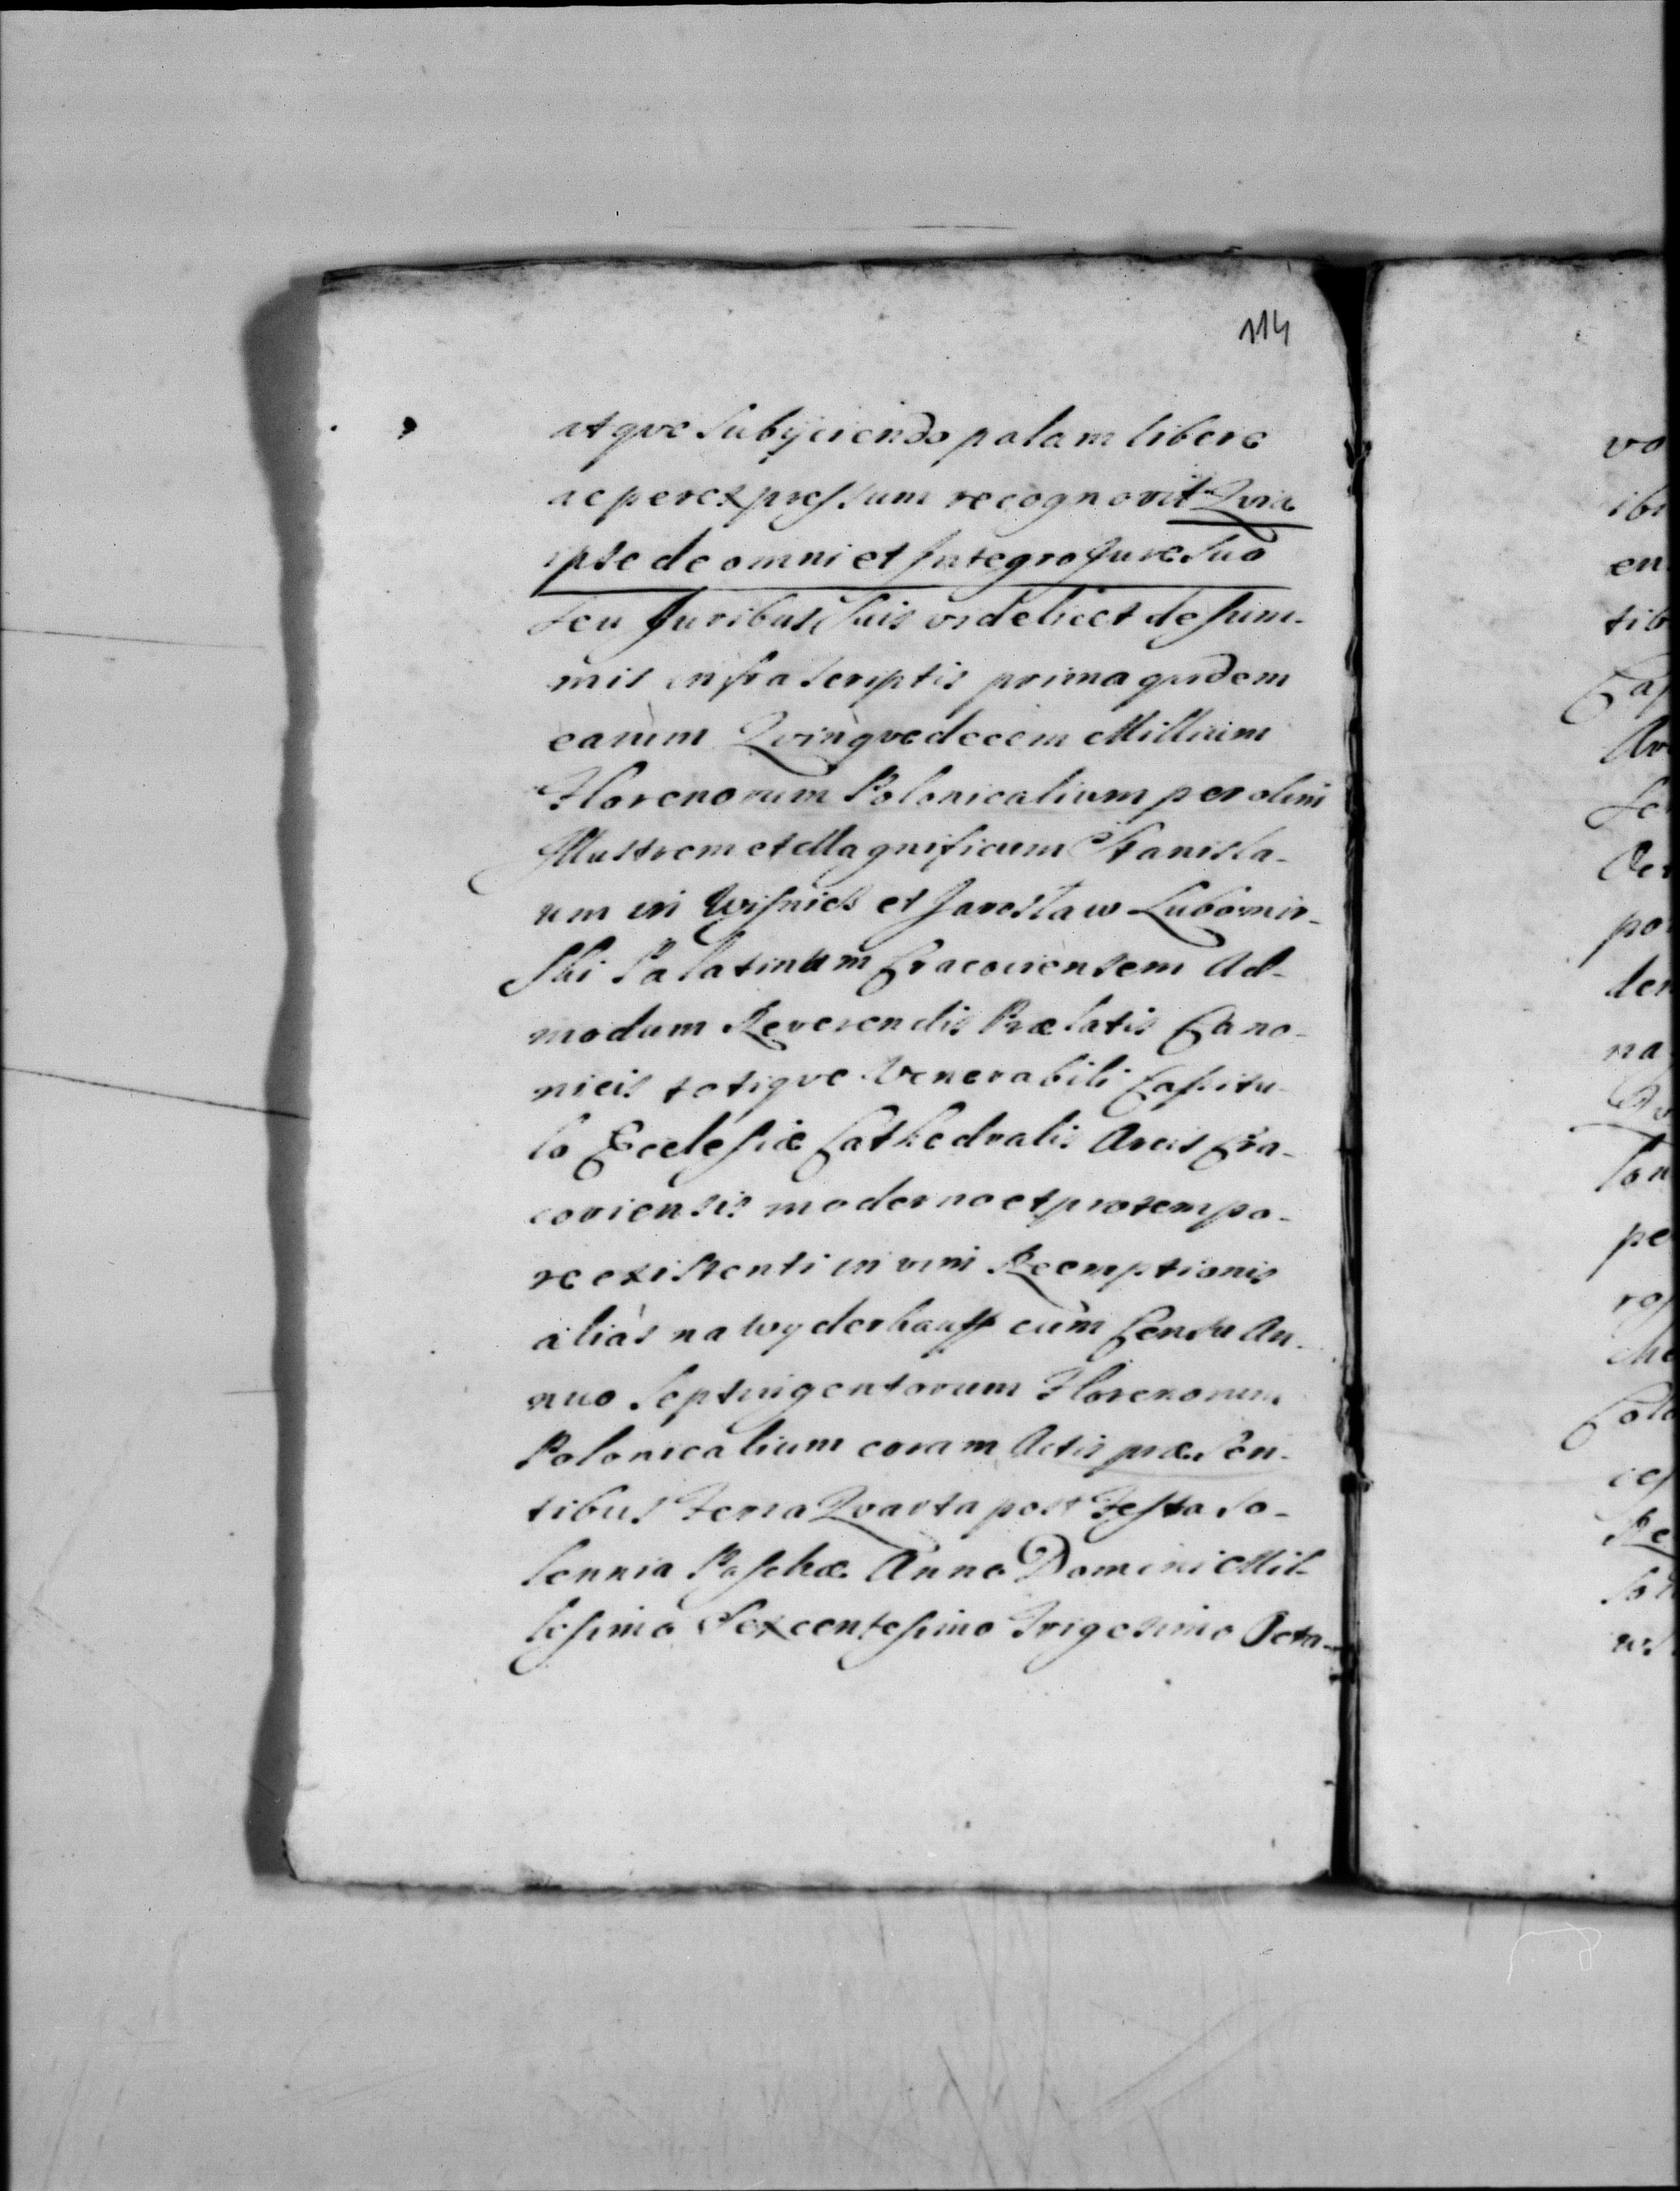 114
atqve subijciendo palam libere
ac per expressum recognovit Qvia
ipse de omni et Integro Jure suo
seu Juribus suis videlicet de sum-
mis infrascriptis prima qvidem
earùm Qvinqvedecem Millium
Florenorum Polonicalium per olim
Illustrem et Magnificum Stanisla-
um in Wisnicz et Jaroslaw Lubomir-
ski Palatinum Cracoviensem Ad-
modum Reverendis Prælatis Cano-
nicis totiqve Venerabili Capitu-
lo Ecclesiæ Cathedralis Arcis Cra-
coviensis moderno et pro tempo-
re existenti in vim Reemptionis
aliàs na wyderkauff cùm Censu An-
nuo Septuigentorum Florenorum
Polonicalium coram Actis præsen-
tibus Feria Qvarta post Festa So-
lennia Paschæ Anno Domini Mil-
lesimo Sexcentesimo Trigesimo Octa-